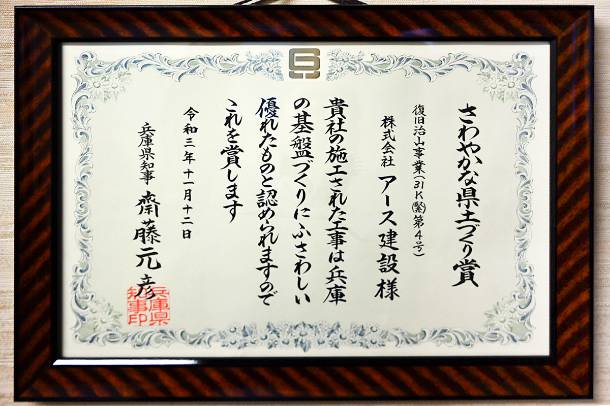 さわやかな県土づくり賞
復旧治山事業(31K㊩第4号)
株式会社 アース建設様
貴社の施工された工事は兵庫
の基盤づくりにふさわしい
優れたものと認められますので
これを賞します
令和三年十一月十二日
兵庫県知事 齋藤元彦
兵庫県
知事印